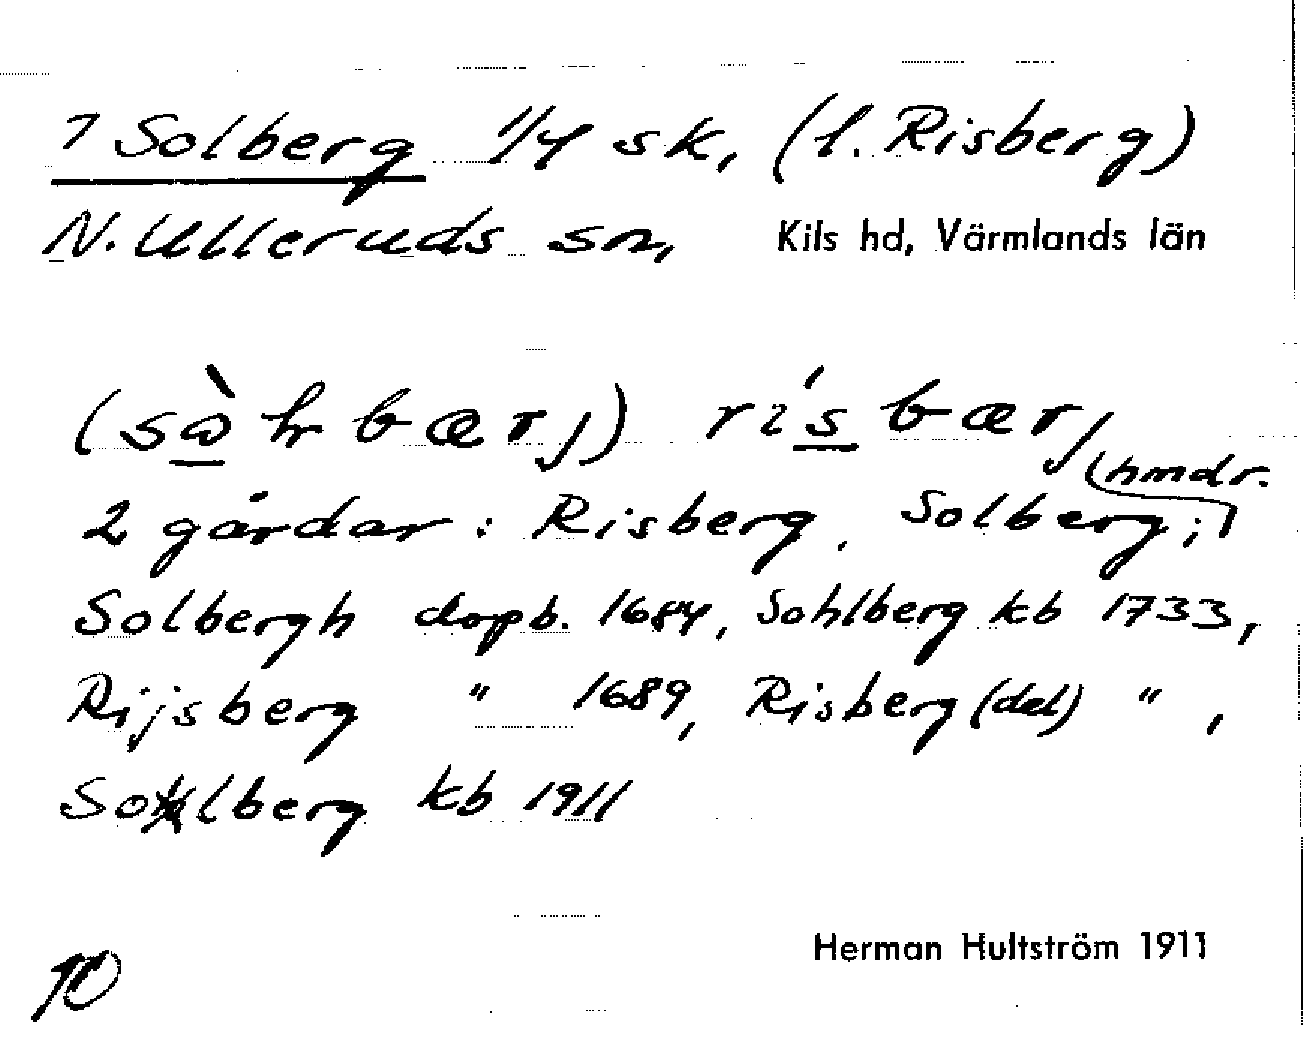 7 Solberg 1/4 sk, (l. Risberg)
N. Ulleruds sn, Kils hd, Värmlands län
rísbærj
2 gårdar: Risberg, Solberg; (hmdr.)
Solbergh dopb. 1684, Sohlberg kb 1733,
Rijsberg " 1689, Risberg (del) ",
Solberg kb 1911
Herman Hultström 1911
10